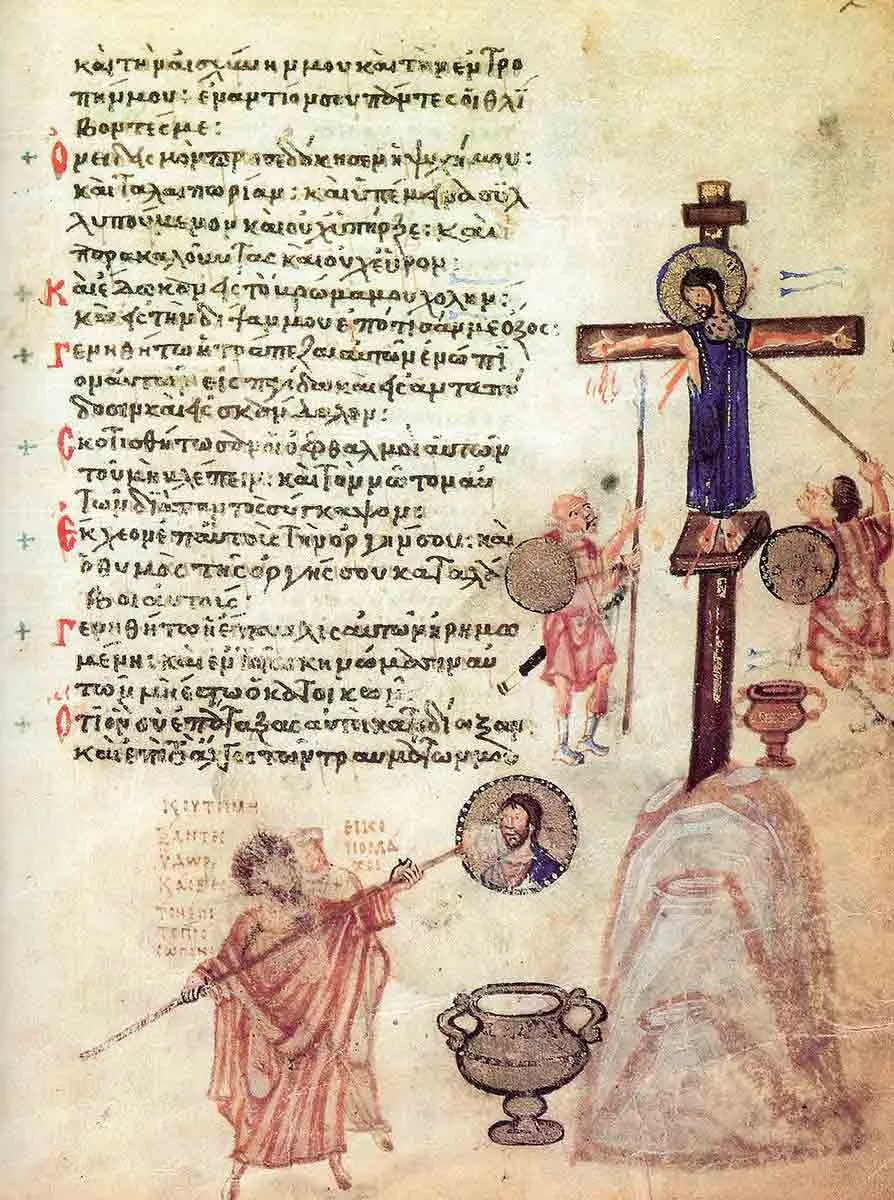 καὶ τὴν αἰσχύνην μου καὶ τὴν ἐντρο
πήν μου: ἐναντίον σου πάντες οἱ θλί
βοντές με:
Ὀνειδισμὸν προσεδόκησεν ἡ ψυχή μου:
καὶ ταλαιπωρίαν: καὶ ὑπέμεινα συλ
λυπούμενον καὶ οὐχ ὑπῆρξε: καὶ
παρακαλοῦντας καὶ οὐχ εὗρον:
Καὶ ἔδωκαν εἰς τὸ βρῶμά μου χολὴν:
καὶ εἰς τὴν δίψαν μου ἐπότισάν με ὄξος:
Γενηθήτω ἡ τράπεζα αὐτῶν ἐνώπι
ον αὐτῶν εἰς παγίδα καὶ εἰς ἀνταπό
δοσιν καὶ εἰς σκάνδαλον:
Σκοτισθήτωσαν οἱ ὀφθαλμοὶ αὐτῶν
τοῦ μὴ βλέπειν: καὶ τὸν νῶτον αὐ
τῶν διὰ παντὸς σύγκαψον:
Ἔκχεον ἐπ' αὐτοὺς τὴν ὀργήν σου: καὶ
ὁ θυμὸς τῆς ὀργῆς σου καταλά
βοι αὐτούς:
Γενηθήτω ἡ ἔπαυλις αὐτῶν ἠρημω
μένη: καὶ ἐν τοῖς σκηνώμασιν αὐ
τῶν μὴ ἔστω ὁ κατοικῶν:
Ὅτι ὃν σὺ ἐπάταξας αὐτοὶ κατεδίωξαν
καὶ ἐπὶ τὸ ἄλγος τῶν τραυμάτων μου
ΞΑΝΤΕΣ
ΥΔΩΡ